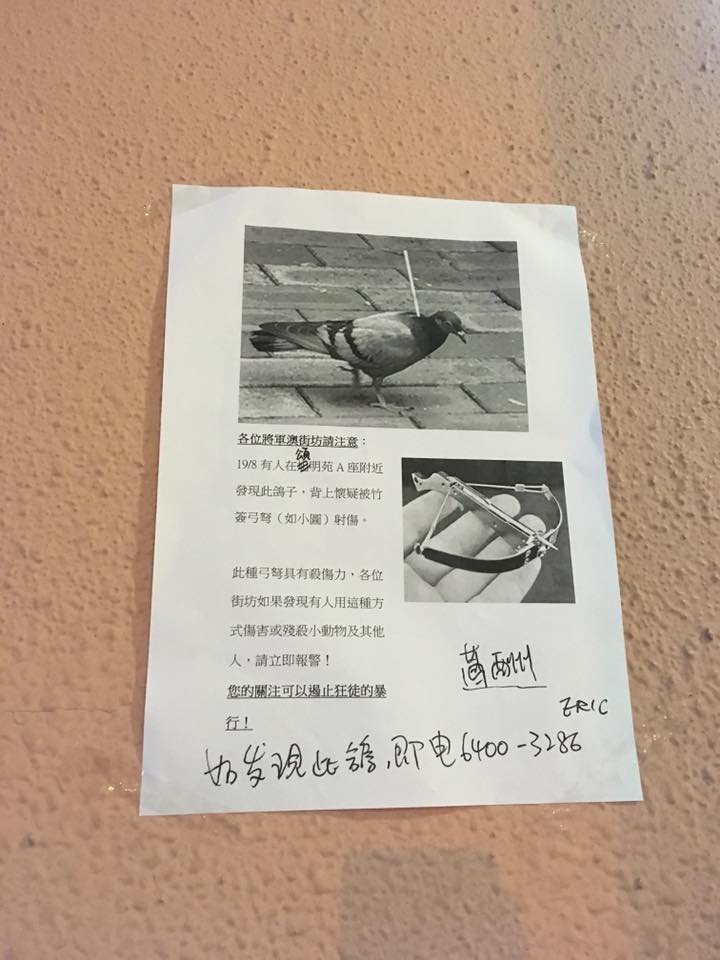 各位將軍澳街坊請注意：
19/8 有人在頌明苑 A 座附近
發現此鴿子，背上懷疑被竹
簽弓弩（如小圖）射傷。
此種弓弩具有殺傷力，各位
街坊如果發現有人用這種方
式傷害或殘殺小動物及其他
人，請立即報警！
您的關注可以遏止狂徒的暴
行！
ERIC
如发現此鴿,即电6400-3286